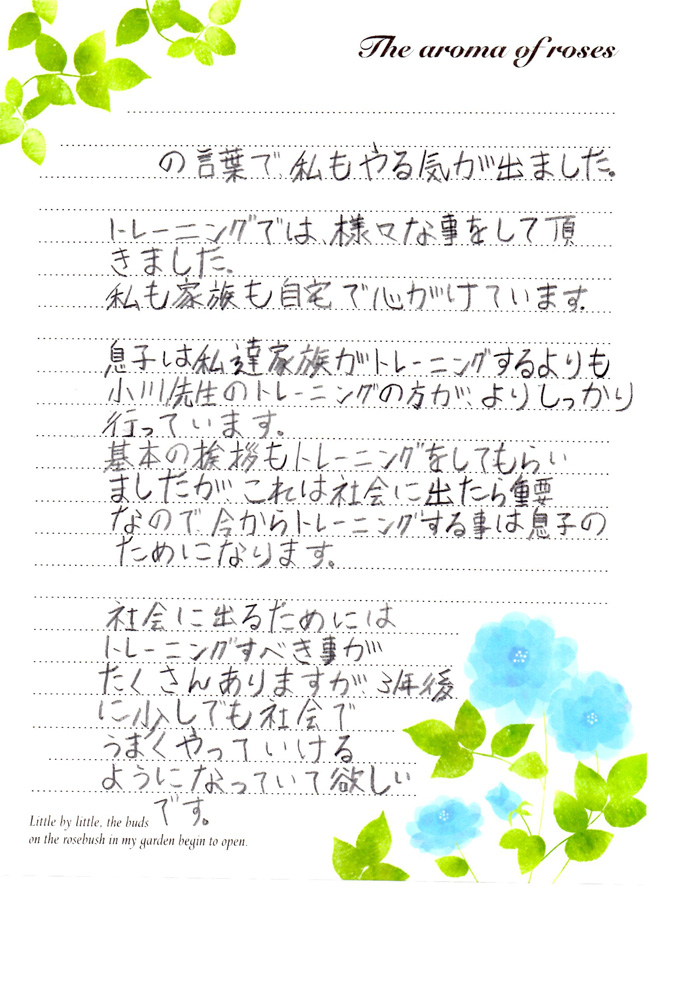 The aroma of roses
の言葉で、私もやる気が出ました。
トレーニングでは、様々な事をして頂
きました。
私も家族も自宅で心がけています。
息子は私達家族がトレーニングするよりも
小川先生のトレーニングの方が、よりしっかり
行っています。
基本の挨拶もトレーニングをしてもらい
ましたが、これは社会に出たら重要
なので、今からトレーニングする事は息子の
ためになります。
社会に出るためには
トレーニングすべき事が
たくさんありますが、3年後
に少しでも社会で
うまくやっていける
ようになっていて欲しい
です。
Little by little, the buds
on the rosebush in my garden begin to open.